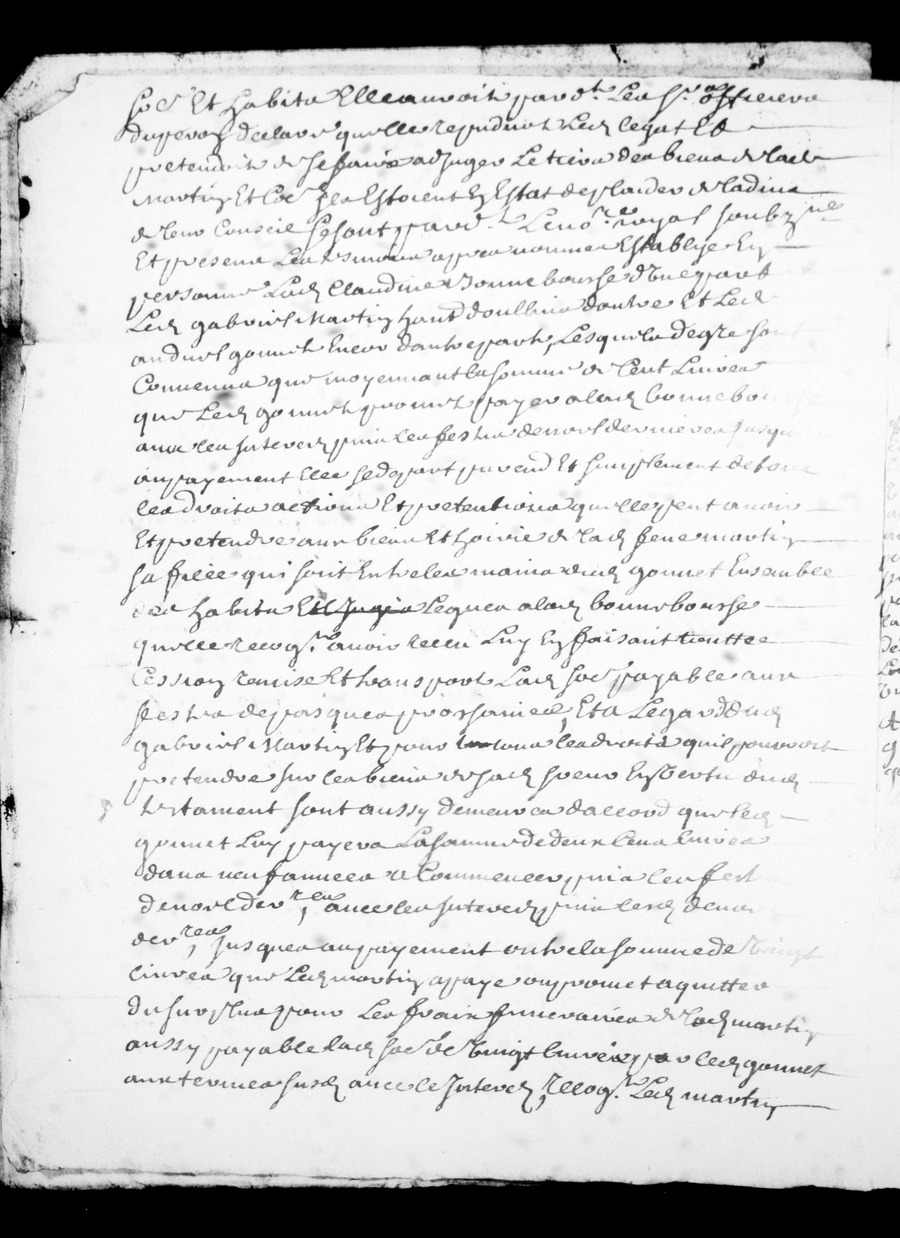 so.e Et habits Elle auroit pard.t Les s.rs officiers
declaré quelle repudioit led. legat Et
pretendoit de se faire adjuger le tiers des biens de lad.
Martin Et Estoient En Estat de plaider de ladvis
de leur Conseil se sont pard.t Le no.re royal soubz.né
Et presens Les tesmoins apres nommes Establye En
personne Lad. Claudine Bonnebourse d'Une part
Led. gabriel Martin dautre Et Led.
gonnet Encor dautre part, Lesquels de gre sont
Convenus que moyennant la somme de Cent Livres
que Led. gonnet promet payer a lad. bonnebourse
avec les Interests puis les festes de noel dernieres Jusqu
au payement Elle se depart purement Et simplement de tous
les droits actions Et pretentions quelle peut avoir
Et pretendre aux biens Et hoirie de lad. feue martin
sa fillie qui sont Entre les mains dud. gonnet Ensemble
des habits legues a lad. bonnebourse
quelle recog.t avoir receu Luy En faisant touttes
Cession remise Et transport Lad. so.e payable aux
festes de pasques prochaines, Et a Legard dud.
gabriel Martin Et pour tous les droits quil pourroit
pretendre sur les biens de sad. soeur En vertu dud.
testament sont aussy demeures daccord que led.
gonnet Luy payera La somme de deux Cens livres
dans neuf annees a Commencer puis les festes
de noel der.res, avec les Interests puis lesd. de noel
der.res, Jusques au payement outre la somme de vingt
livres que Led. martin a paye ou promet aquitter
du surplus pour Les fraix funeraires de lad. martin
aussy payable lad. so.e de vingt livres par led. gonnet
aux termes susd. avec le Interests, recog.t Led. martin